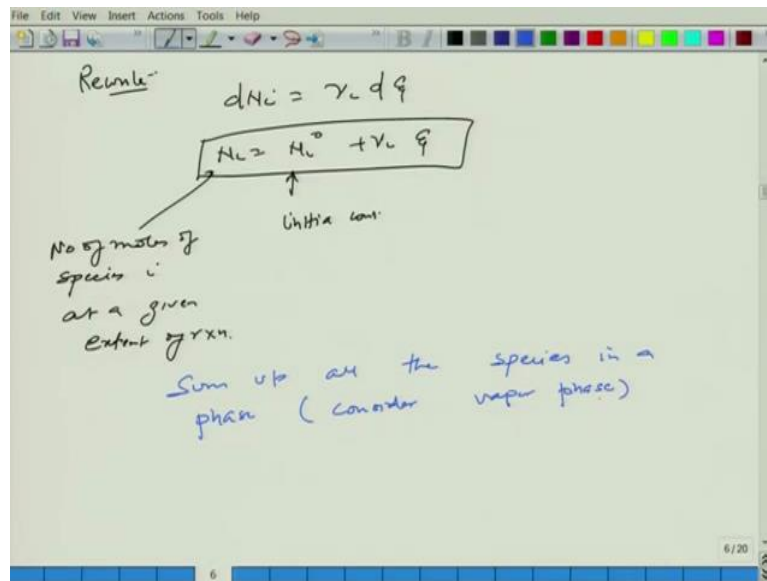 File Edit View Insert Actions Tools Help
Rewrite -
dNi = νi dξ
Ni = Ni° + νi ξ
initial
No of moles of
species i
at a given
extent of rxn.
Sum up all the species in a
phase (consider vapor phase)
6/20
6